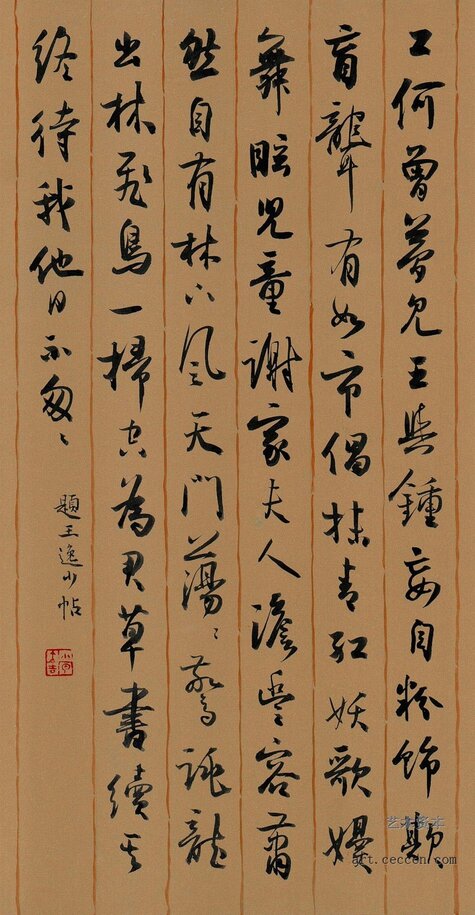 工何曾夢見王與鍾妄自粉飾欺
盲聾有如市倡抹青紅妖歌嫚
舞眩兒童謝家夫人澹豐容蕭
然自有林下風天門蕩〻驚跳龍
出林飛鳥一掃空為君草書續其
終待我他日不匆〻
題王逸少帖
艺术资本
art.ceccen.com